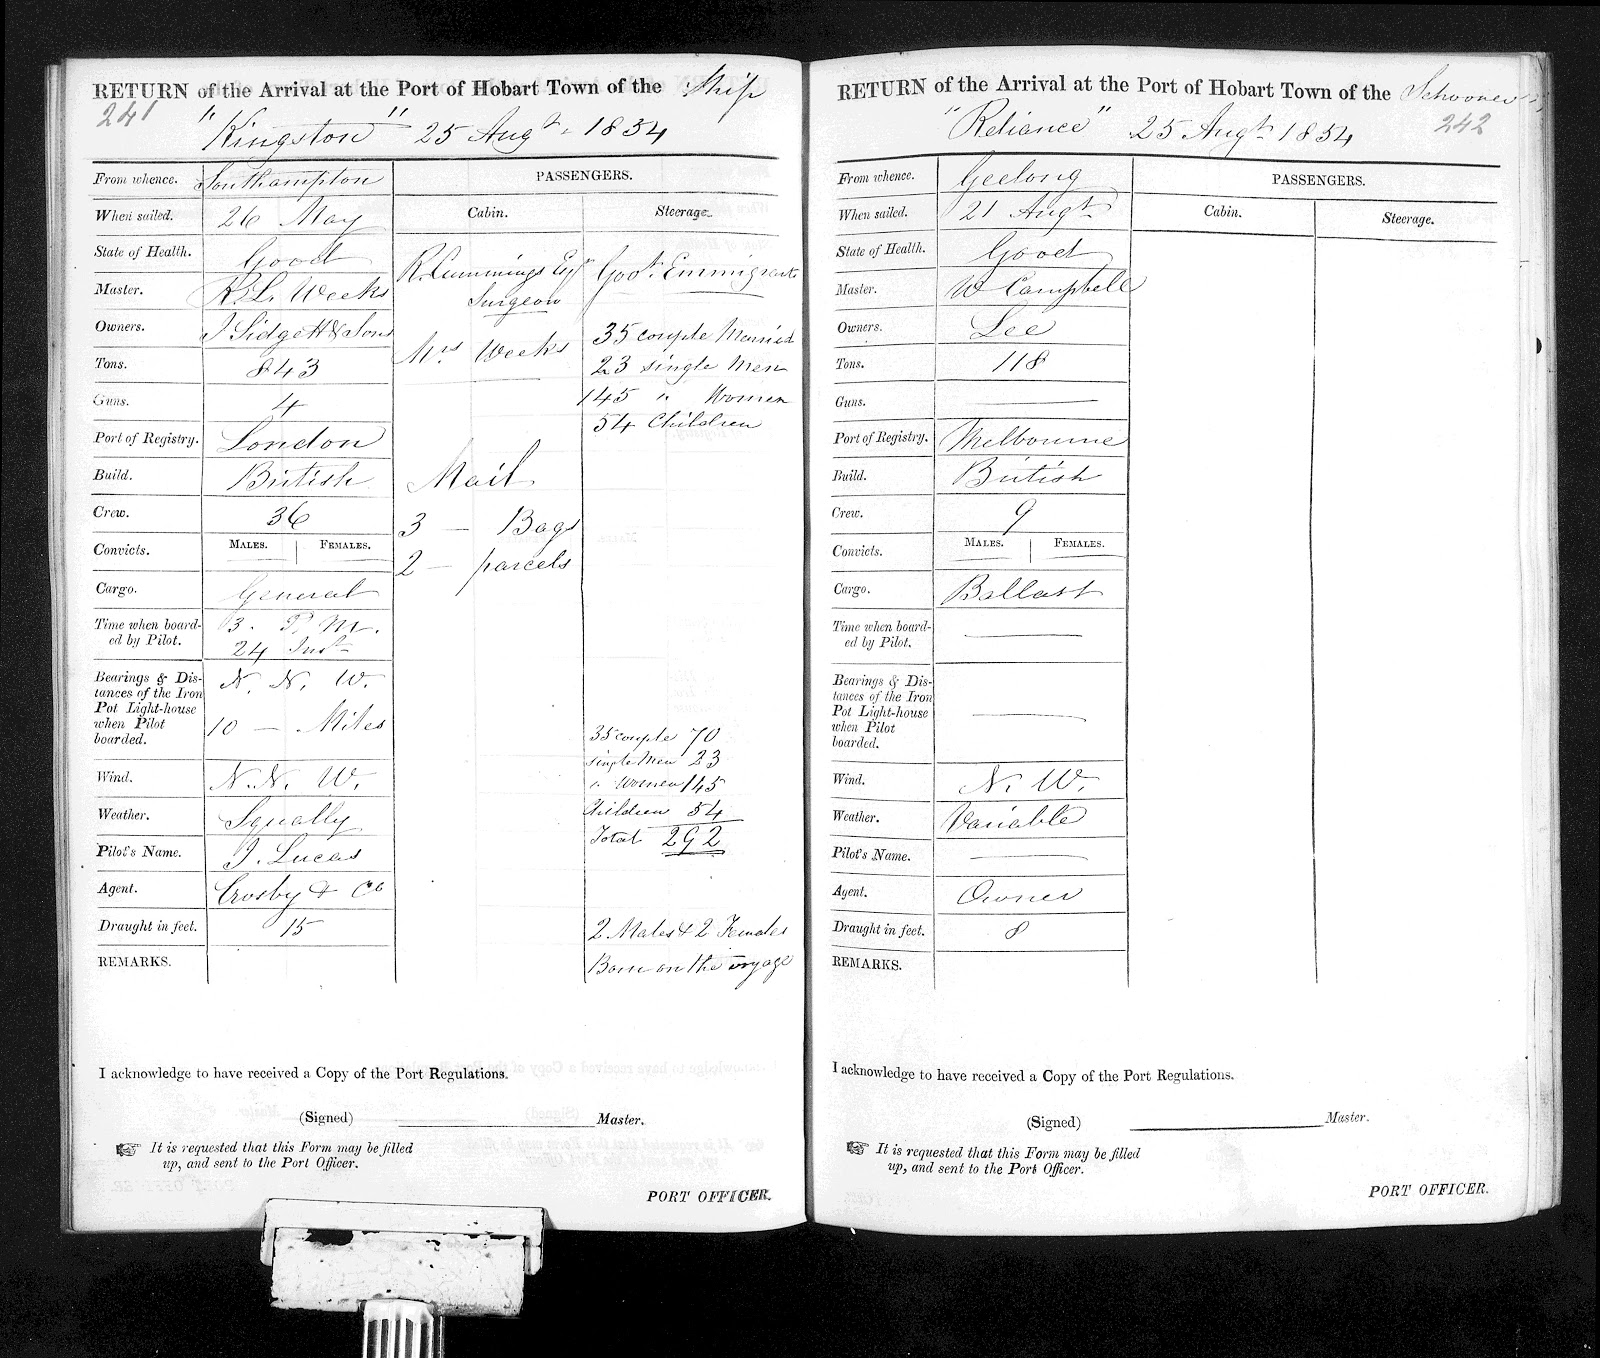 RETURN of the Arrival at the Port of Hobart Town of the Ship
241
"Kingston" 25 Augt. 1854
From whence. Southampton
When sailed. 26 May
State of Health. Good
Master. R. L. Weeks
Owners. J Lidgett & Sons
Tons. 843
Guns. 4
Port of Registry. London
Build. British
Crew. 36
Convicts. MALES. FEMALES.
Cargo. General
Time when board- 3. P. M.
ed by Pilot. 24 Inst
Bearings & Dis- N. N. W.
tances of the Iron
Pot Light-house
when Pilot 10 — Miles
boarded.
Wind. N. N. W.
Weather. Squally
Pilot's Name. J. Lucas
Agent. Crosby & Co
Draught in feet. 15
REMARKS.
PASSENGERS.
Cabin.
R. Cummings Esqr
Surgeon
Mrs Weeks
Mail
3 — Bags
2 — parcels
Steerage.
Govt. Emmigrants
35 couple Married
23 single Men
145 " Women
54 Children
35 couple 70
single Men 23
" Women 145
Children 54
Total 292
2 Males & 2 Females
Born on the voyage
I acknowledge to have received a Copy of the Port Regulations.
(Signed) Master.
☞ It is requested that this Form may be filled
up, and sent to the Port Officer.
PORT OFFICER.
RETURN of the Arrival at the Port of Hobart Town of the Schooner
"Reliance" 25 Augt 1854
242
From whence. Geelong
When sailed. 21 Augt
State of Health. Good
Master. W Campbell
Owners. Lee
Tons. 118
Guns. —
Port of Registry. Melbourne
Build. British
Crew. 9
Convicts. MALES. FEMALES.
Cargo. Ballast
Time when board-
ed by Pilot. —
Bearings & Dis-
tances of the Iron
Pot Light-house —
when Pilot
boarded.
Wind. N. W.
Weather. Variable
Pilot's Name. —
Agent. Owner
Draught in feet. 8
REMARKS.
PASSENGERS.
Cabin.
Steerage.
I acknowledge to have received a Copy of the Port Regulations.
(Signed) Master.
☞ It is requested that this Form may be filled
up, and sent to the Port Officer.
PORT OFFICER.